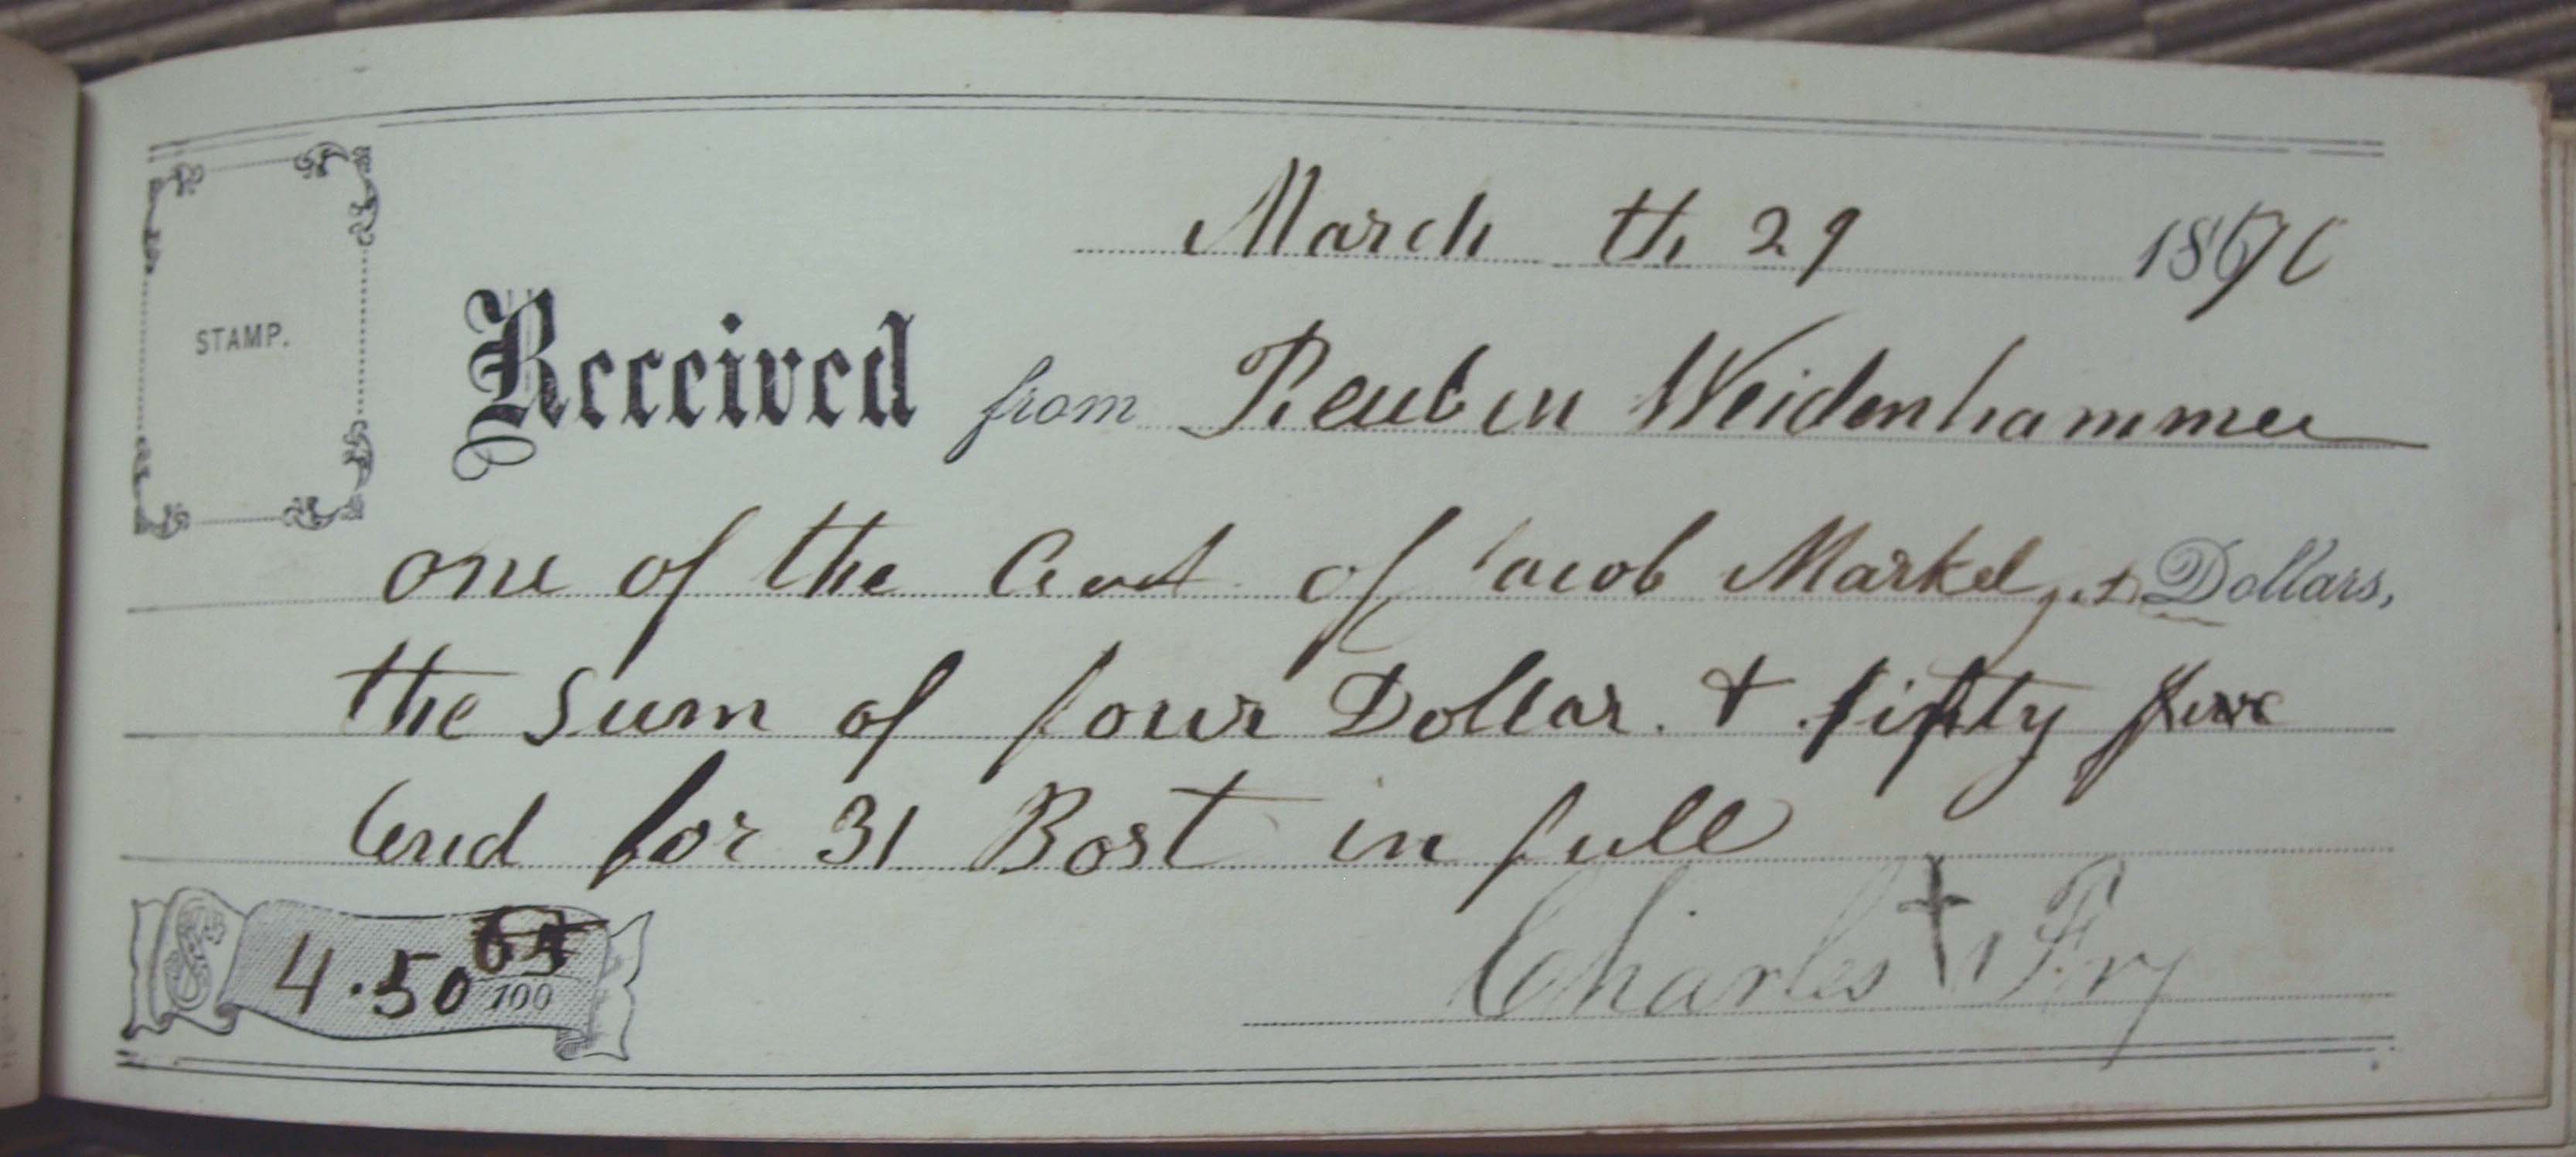 March th 29 1870
STAMP.
Received from Reuben Weidenhammer
one of the of Jacob Markel Dollars,
the Sum of four Dollar & fifty five
Cend for 31 Bost in full
$ 4.50 /100
Charles + Fry